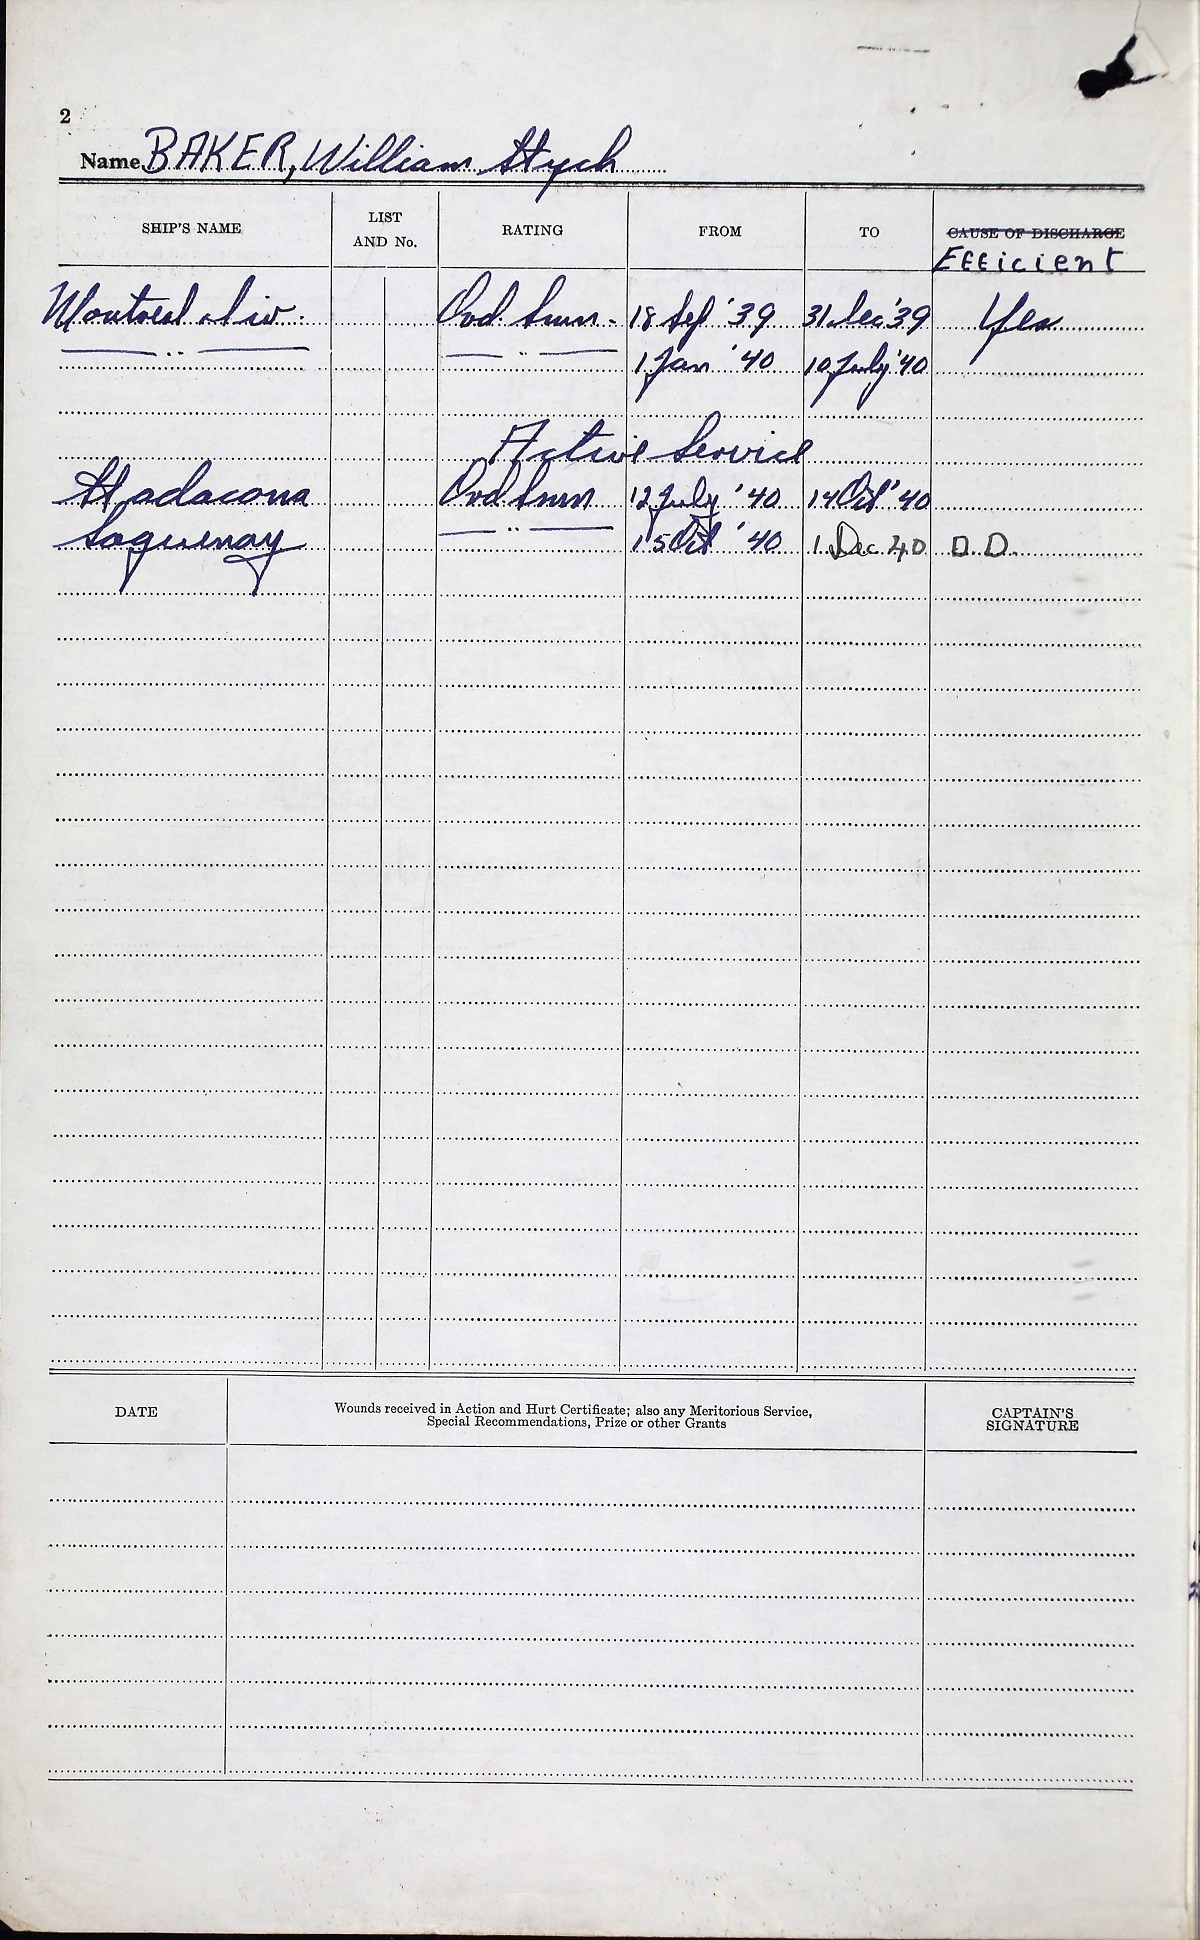 2
Name BAKER, William Stych
SHIP'S NAME LIST AND No. RATING FROM TO CAUSE OF DISCHARGE
Efficient
Montreal Div. Ord. Smn. 18 Sep '39 31 Dec '39 Yes
— " — — " — 1 Jan '40 10 July '40
Active Service
Stadacona Ord Smn 12 July '40 14 Oct '40
Saguenay — " — 15 Oct '40 1 Dec 40 D.D.
DATE Wounds received in Action and Hurt Certificate; also any Meritorious Service, CAPTAIN'S
Special Recommendations, Prize or other Grants SIGNATURE